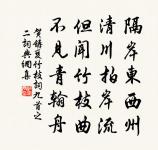 隔岸東西州
清川拍岸流
但聞竹枝曲
不見青翰舟
賀鑄變竹枝詞九首之
二詞典網集